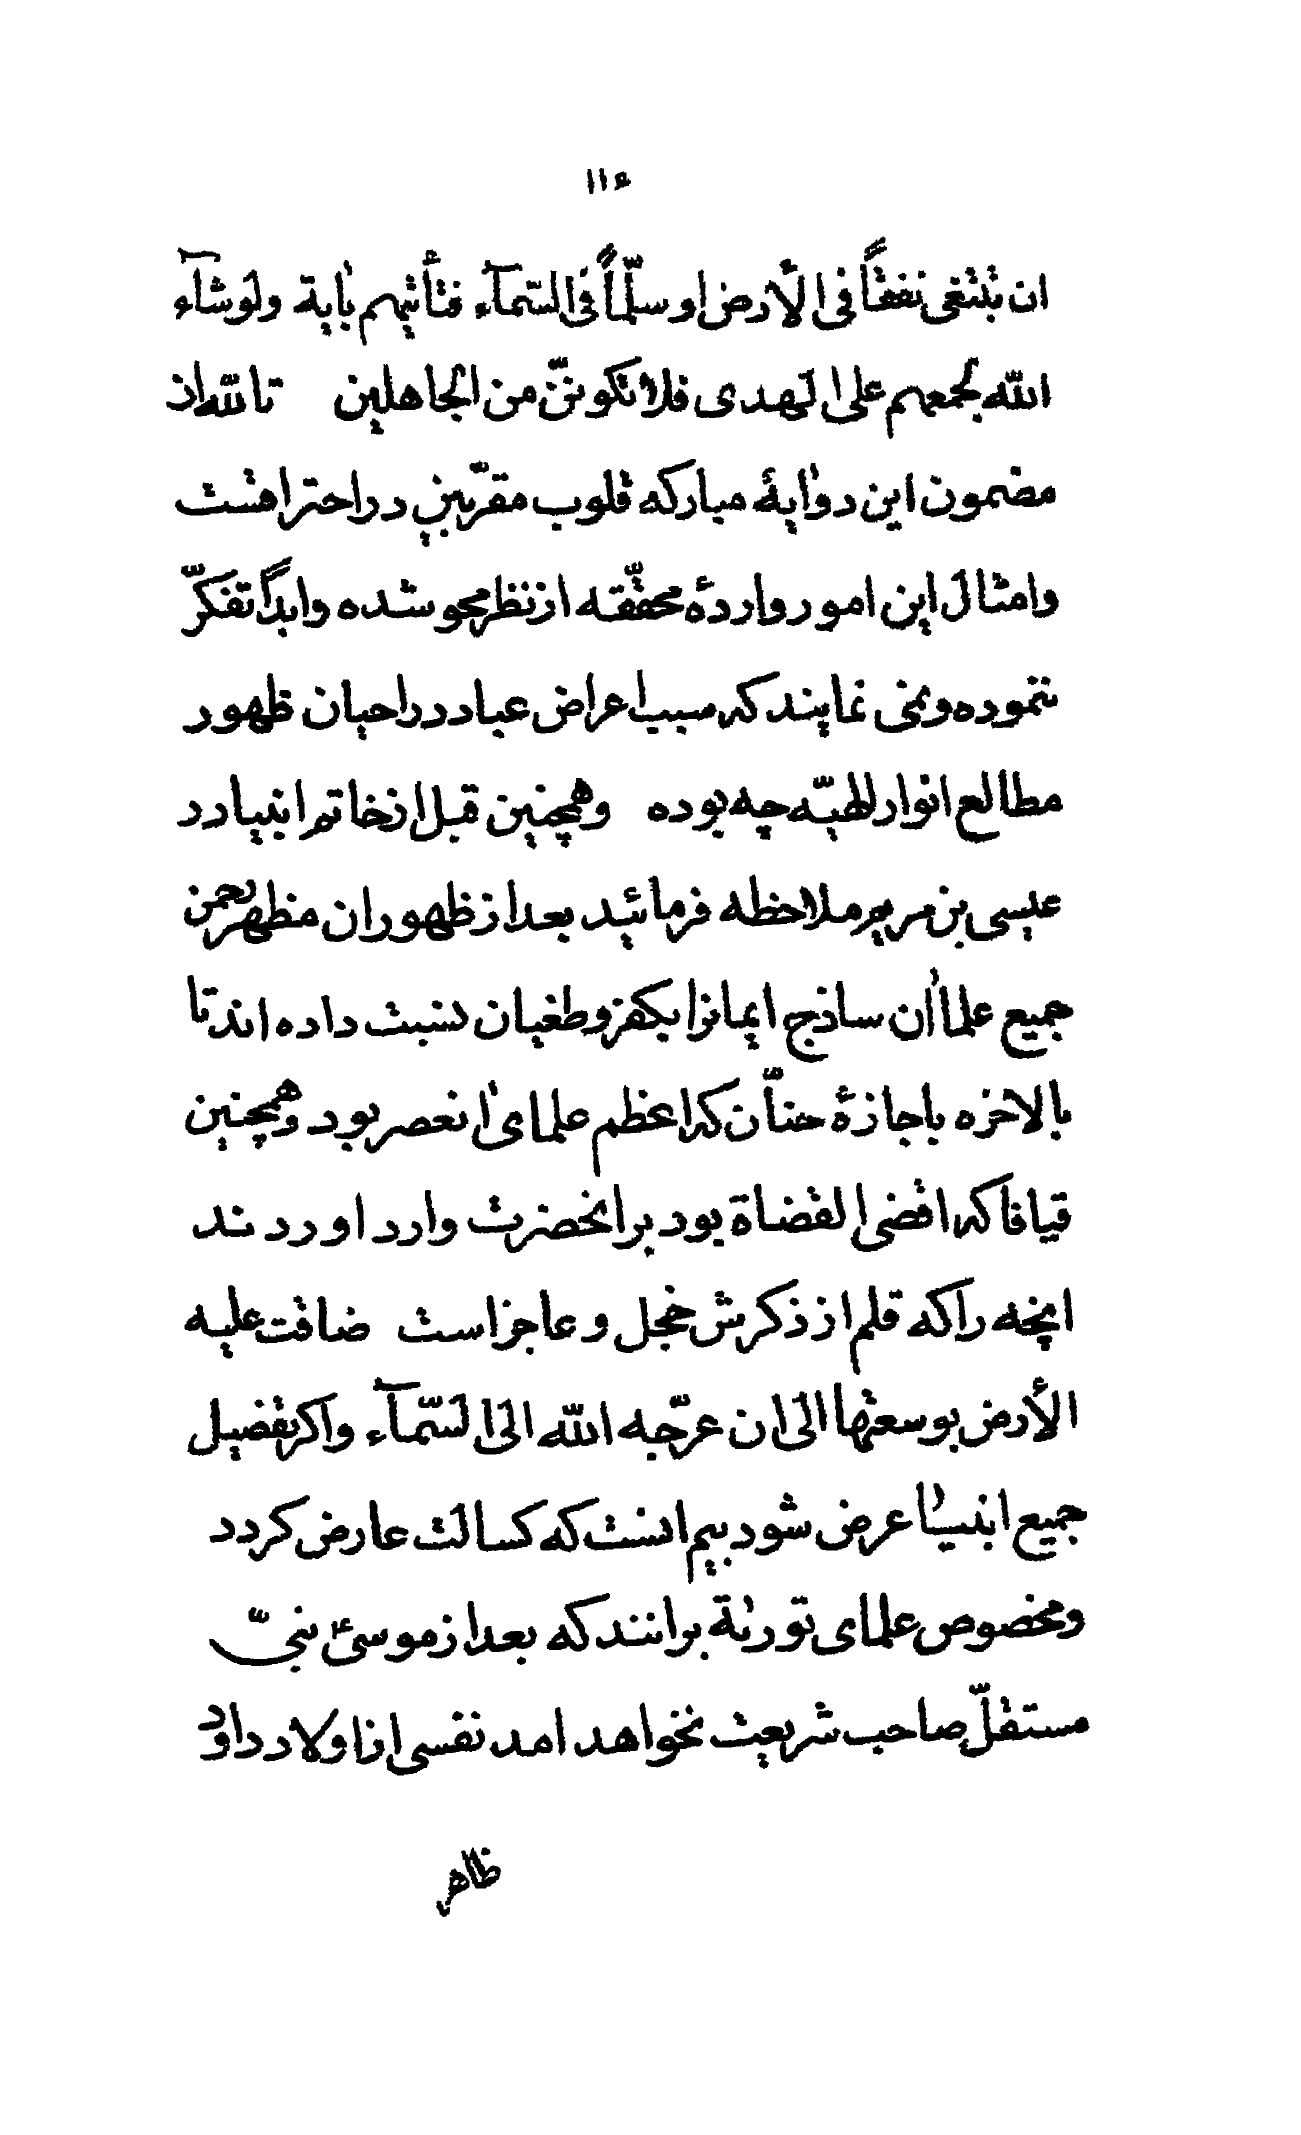 ١١٤
ان تبتغی نفقاً فی الأرض او سلّماً فی السّمآء فتأتیهم بٰایة ولوشآء
اللّه لجمعهم علی الهدی فلا تکوننّ من الجاهلین تاللّه از
مضمون این دو اٰیهٔ مبارکه قلوب مقرّبین در احتراقست
وامثال این امور واردهٔ محقّقه از نظر محو شده وابداً تفکّر
ننموده و نمی نمایند که سبب اعراض عباد در احیان ظهور
مطالع انوار الهیّه چه بوده وهمچنین قبل از خاتم انبیا در
عیسی بن مریم ملاحظه فرمائید بعد از ظهور ان مظهر رحمن
جمیع علما اٰن ساذج ایمانرا بکفر و طغیان نسبت داده اند تا
بالاخره باجازهٔ حنّان که اعظم علمای اٰنعصر بود وهمچنین
قیافا که اقضی القضاة بود بر انحضرت وارد اوردند
انچه را که قلم از ذکرش خجل و عاجز است ضاقت علیه
الأرض بوسعتها الی ان عرّجه اللّه الی السّمآء واکر تفضیل
جمیع انبیا عرض شود بیم انست که کسالت عارض کردد
ومخصوص علمای توریٰة برانند که بعد از موسی نبیّ
مستقلّ صاحب شریعت نخواهد امد نفسی از اولاد داود
ظاهر